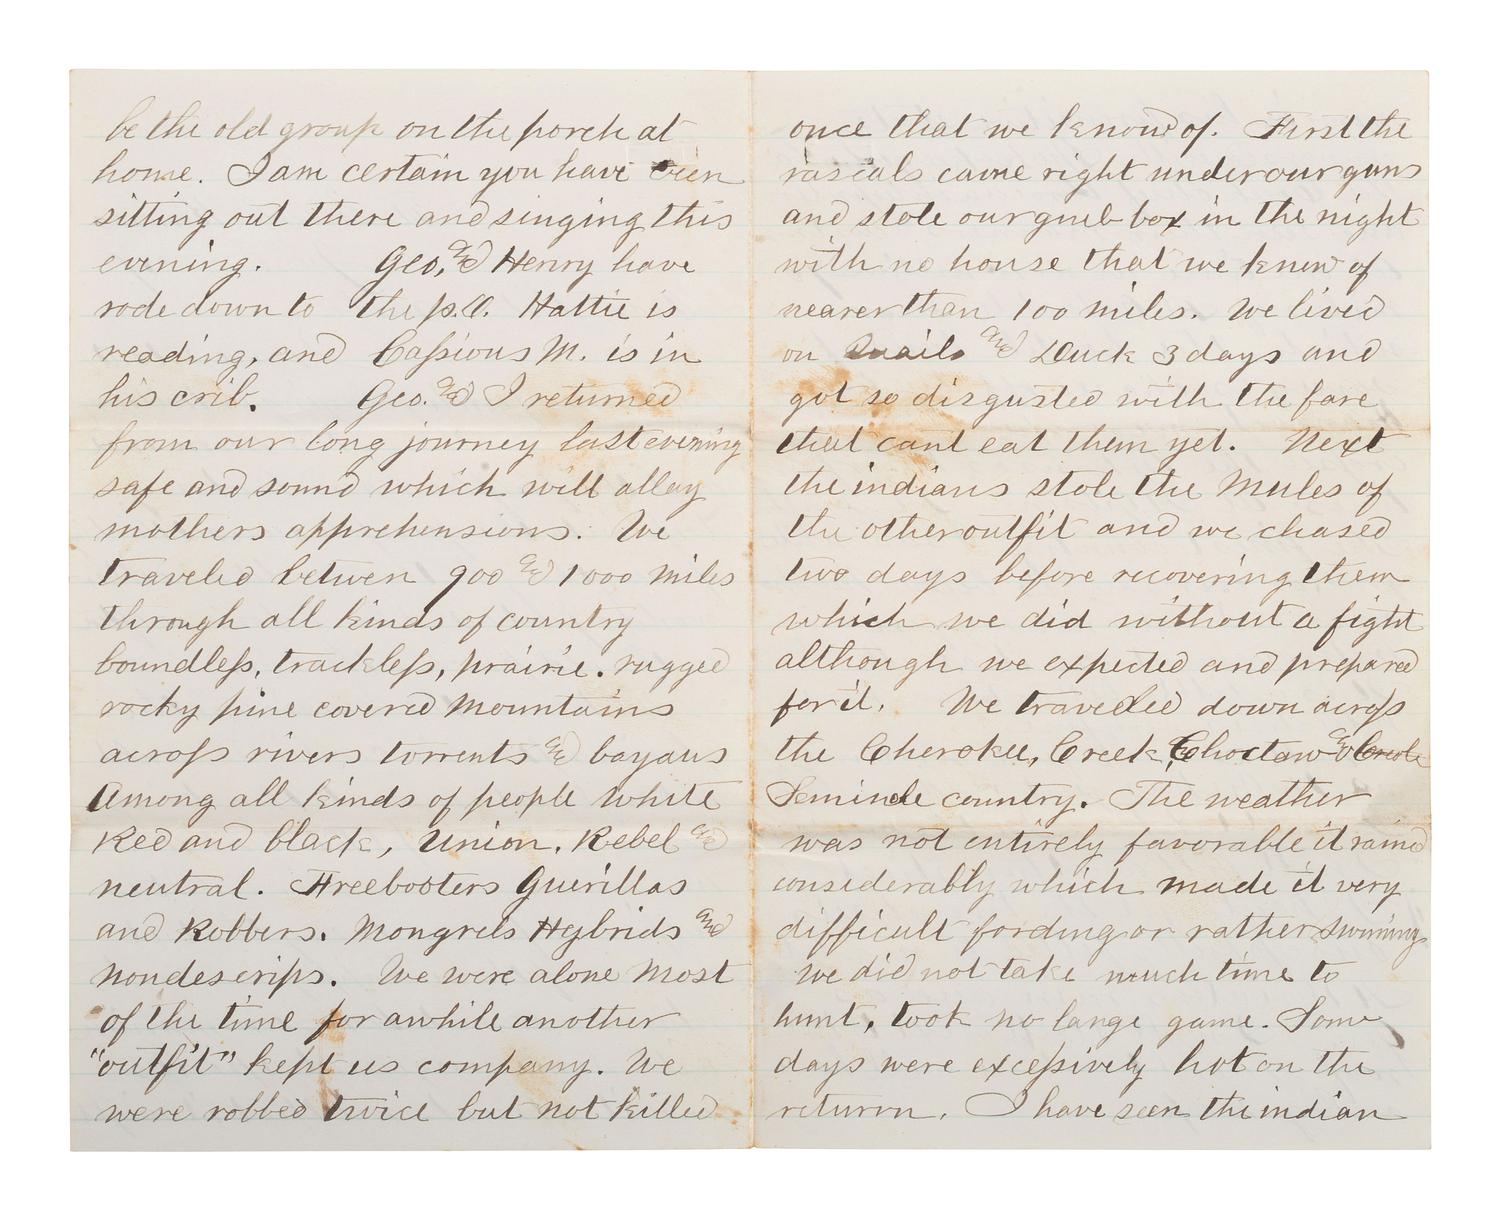 be the old group on the porch at
home. I am certain you have been
sitting out there and singing this
evening. Geo, and Henry have
rode down to the p.O. Hattie is
reading, and Cassious M. is in
his crib. Geo. and I returned
from our long journey last evening
safe and sound which will allay
mothers apprehensions. We
traveled between 900 and 1000 miles
through all kinds of country
boundless, trackless, prairie. rugged
rocky pine covered mountains
across rivers torrents and bayaus
Among all kinds of people white
Red and black, Union, Rebel and
neutral. Freebooters Guerillas
and Robbers. Mongrels Hybrids and
nondescrips. We were alone most
of the time for awhile another
"outfit" kept us company. We
were robbed twice but not killed
once that we know of. First the
rascals came right under our guns
and stole our grub box in the night
with no house that we knew of
nearer than 100 miles. We lived
on Quails and Duck 3 days and
got so disgusted with the fare
that cant eat them yet. Next
the indians stole the Mules of
the other outfit and we chased
two days before recovering them
which we did without a fight
although we expected and prepared
for it. We traveled down across
the Cherokee, Creek, Choctaw and Creole
Seminole country. The weather
was not entirely favorable it rained
considerably which made it very
difficult fording or rather swiming
we did not take much time to
hunt, took no large game. Some
days were excessively hot on the
return. I have seen the indian